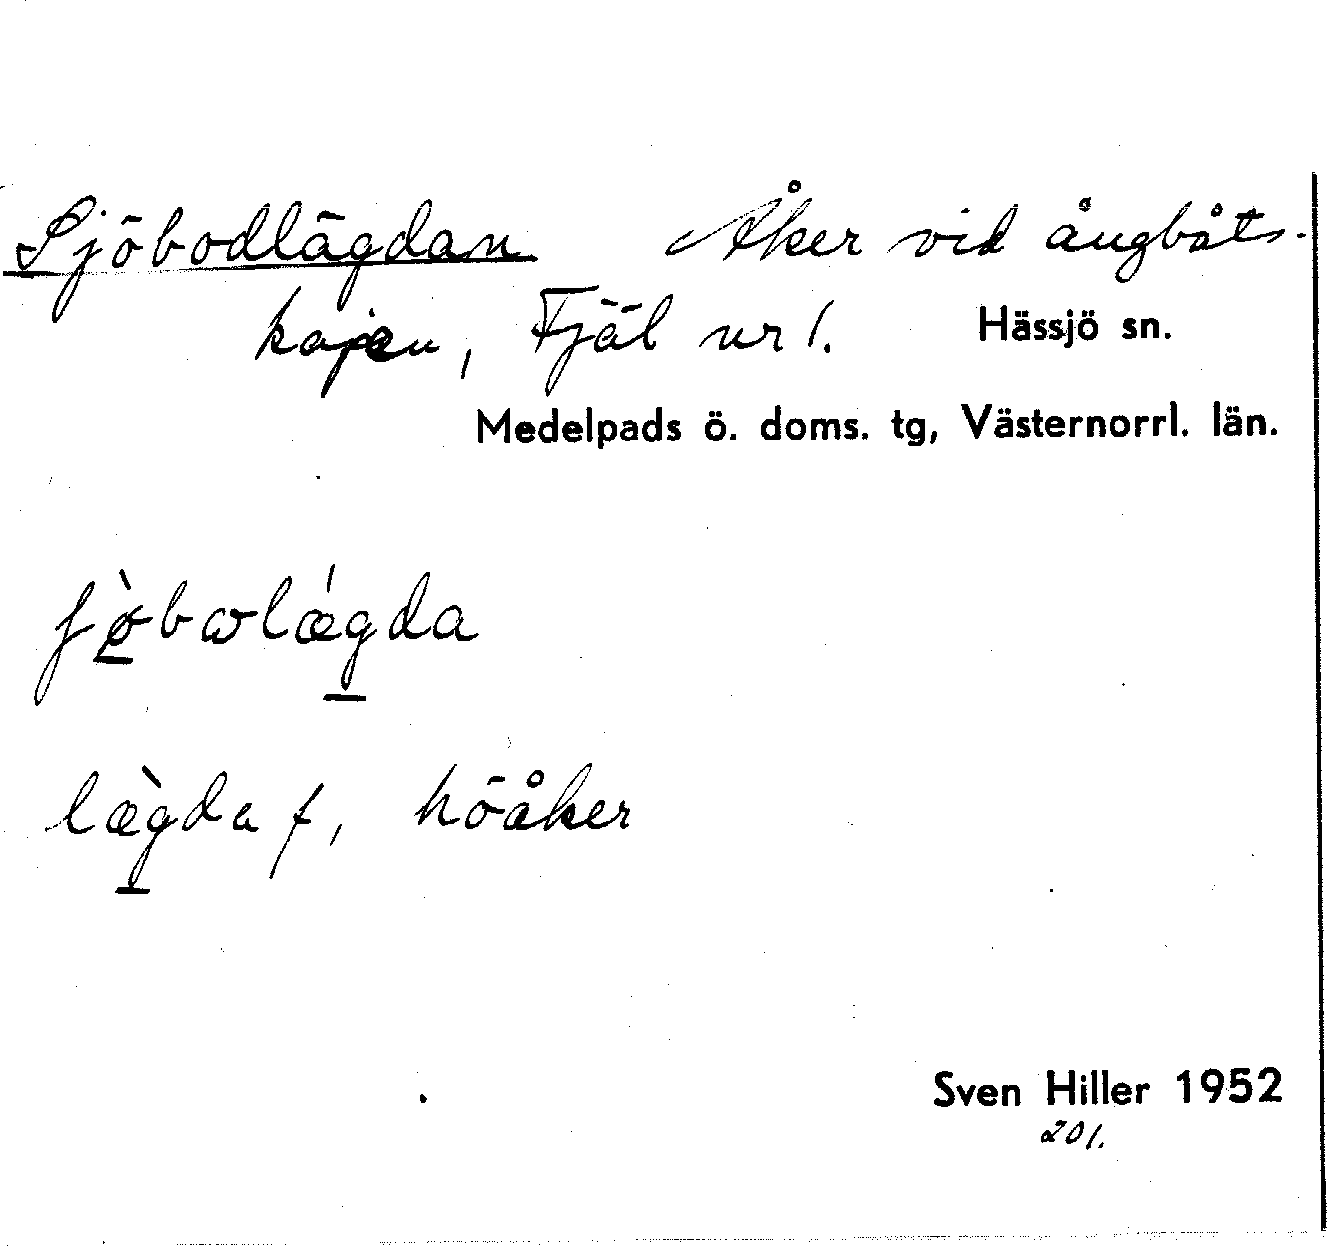 Sjöbodlägdan Åker vid ångbåts-
kajen, Fjäl nr 1. Hässjö sn.
Medelpads ö. doms. tg, Västernorrl. län.
lægda f, höåker
Sven Hiller 1952
201.